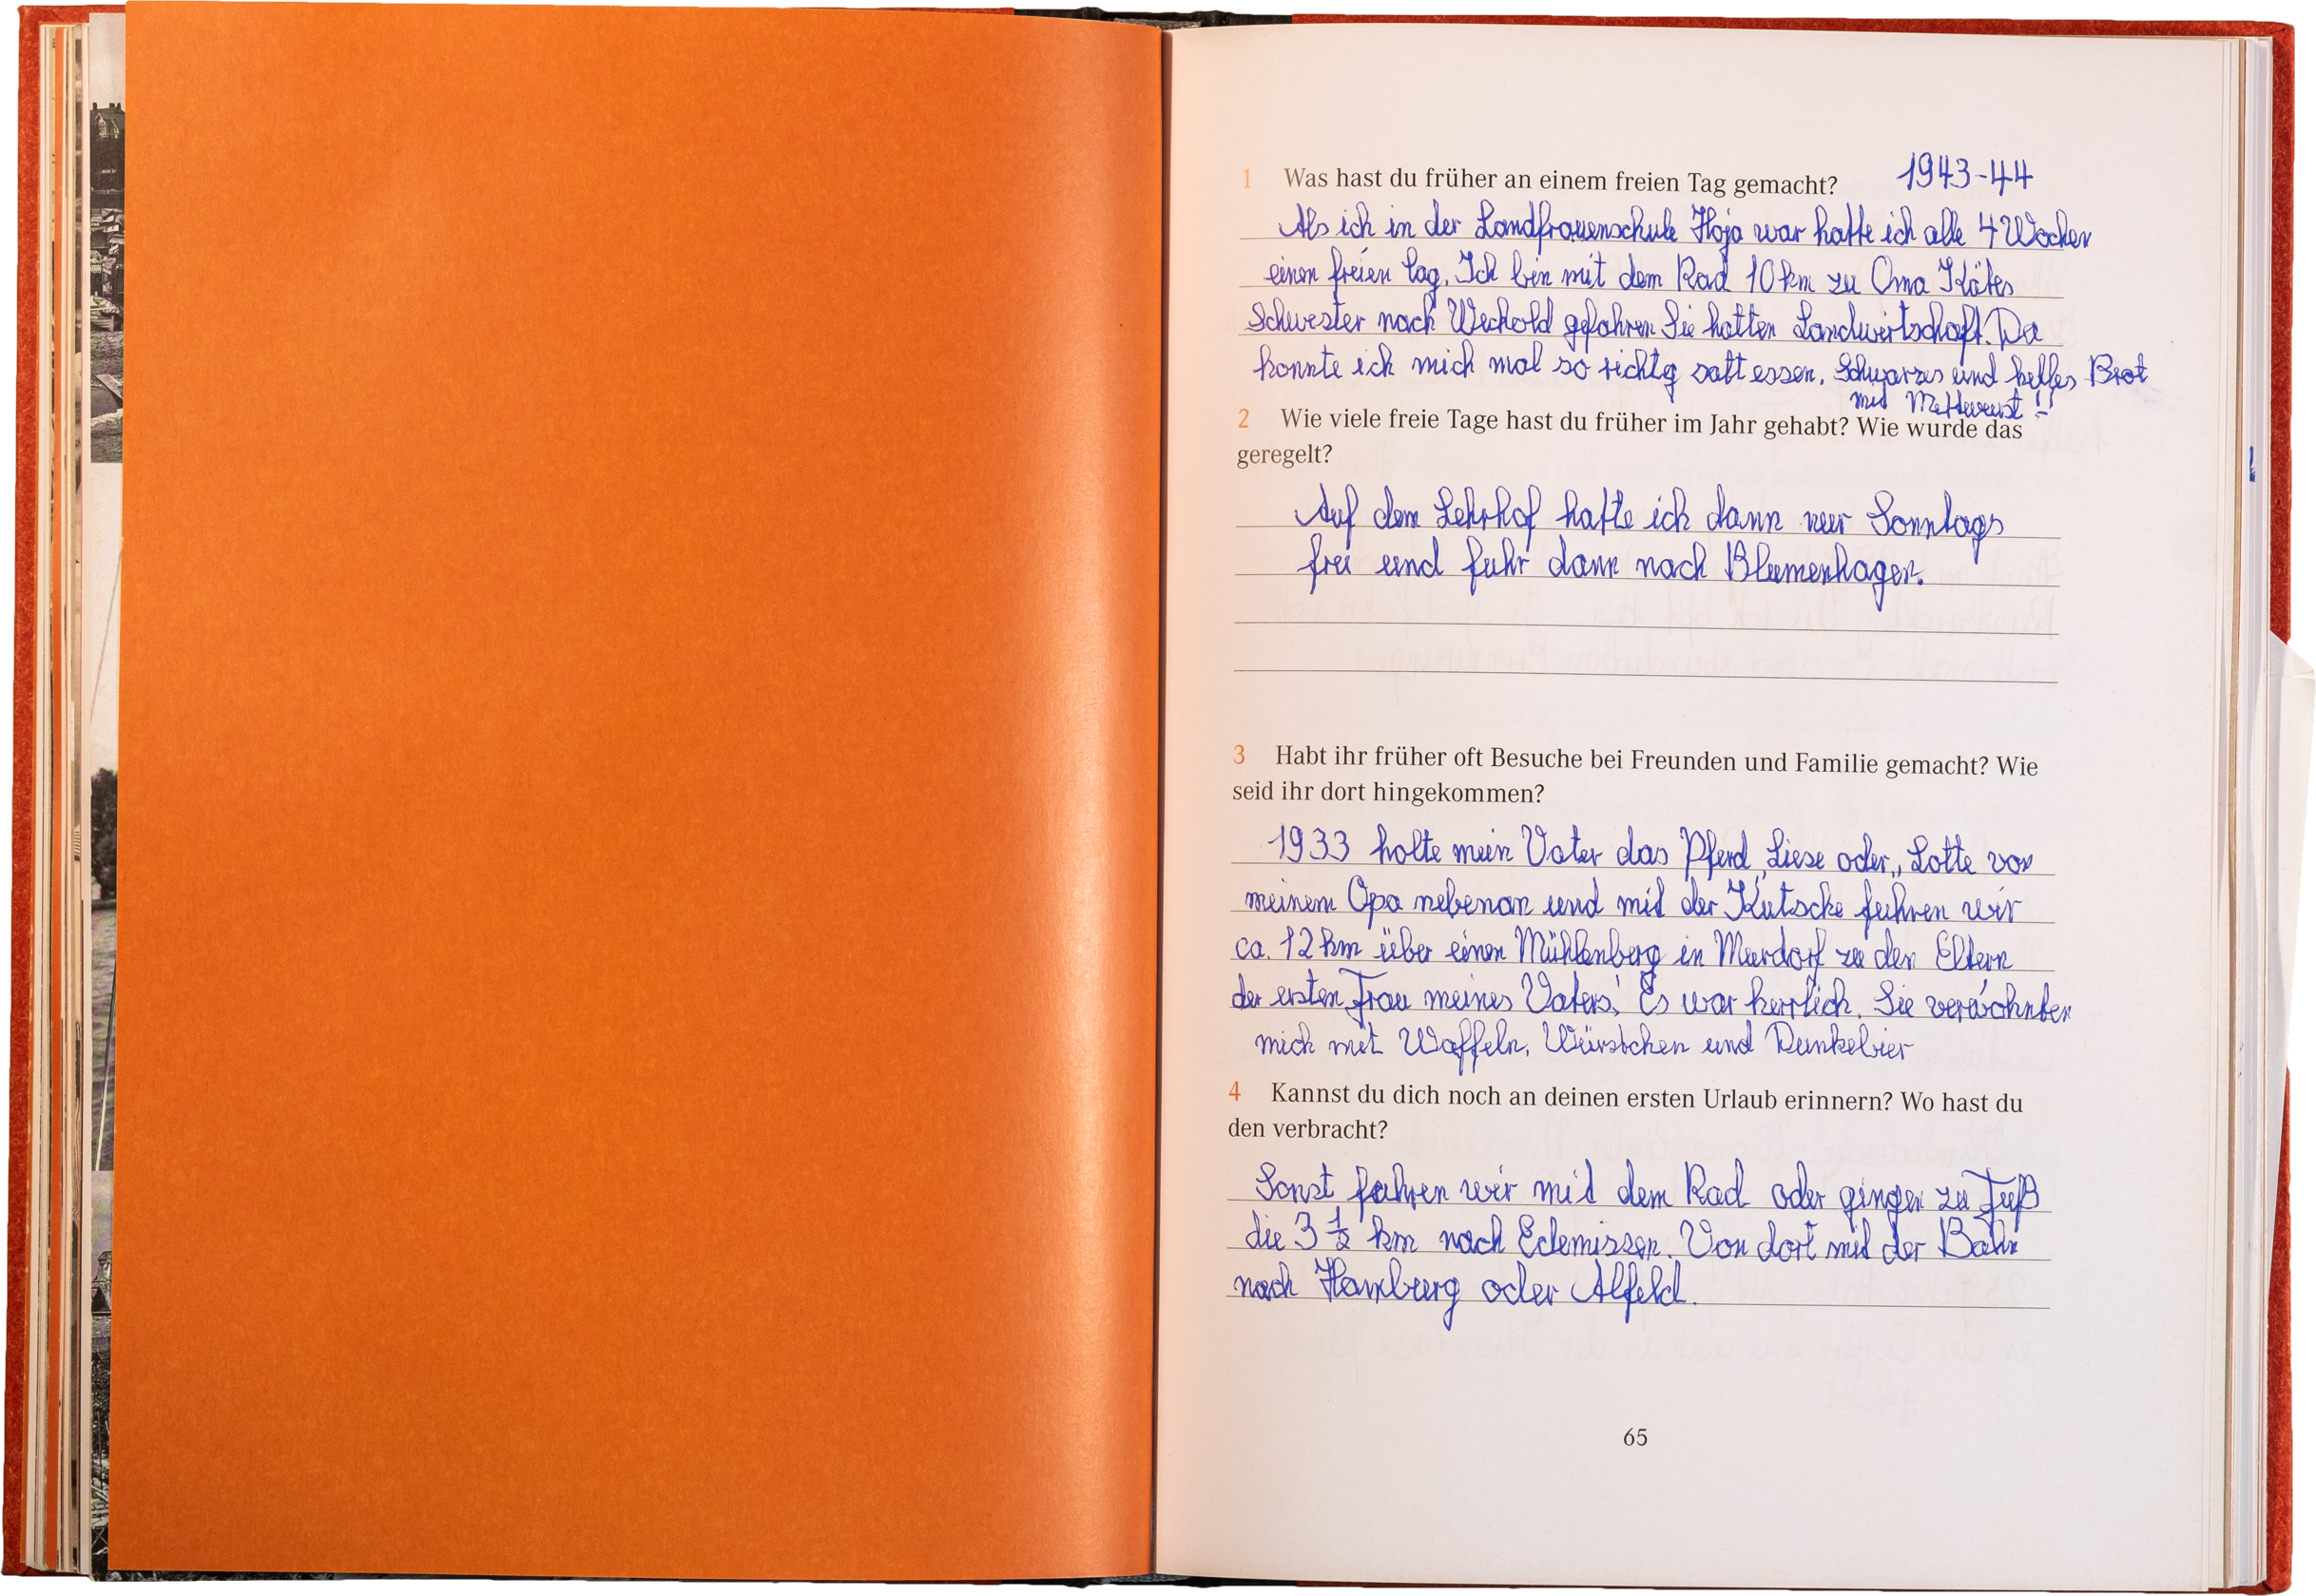 1 Was hast du früher an einem freien Tag gemacht? 1943-44
Als ich in der Landfrauenschule Hoja war hatte ich alle 4 Wochen
einen freien Tag. Ich bin mit dem Rad 10 km zu Oma Kätes
Schwester nach Wechold gefahren Sie hatten Landwirtschaft. Da
konnte ich mich mal so richtig satt essen. Schwarzes und helles Brot
mit Mettwurst!!
2 Wie viele freie Tage hast du früher im Jahr gehabt? Wie wurde das
geregelt?
Auf dem Lehrhof hatte ich dann nur Sonntags
frei und fuhr dann nach Blumenhagen.
3 Habt ihr früher oft Besuche bei Freunden und Familie gemacht? Wie
seid ihr dort hingekommen?
1933 holte mein Vater das Pferd „Liese oder „Lotte von
meinem Opa nebenan und mit der Kutsche fuhren wir
ca. 12 km über einen Mühlenberg in Meerdorf zu den Eltern
der ersten Frau meines Vaters. Es war herrlich. Sie verwöhnten
mich mit Waffeln, Würstchen und Dunkelbier
4 Kannst du dich noch an deinen ersten Urlaub erinnern? Wo hast du
den verbracht?
Sonst fuhren wir mit dem Rad oder gingen zu Fuß
die 3 1/2 km nach Edemissen. Von dort mit der Bahn
nach Hamburg oder Alfeld.
65